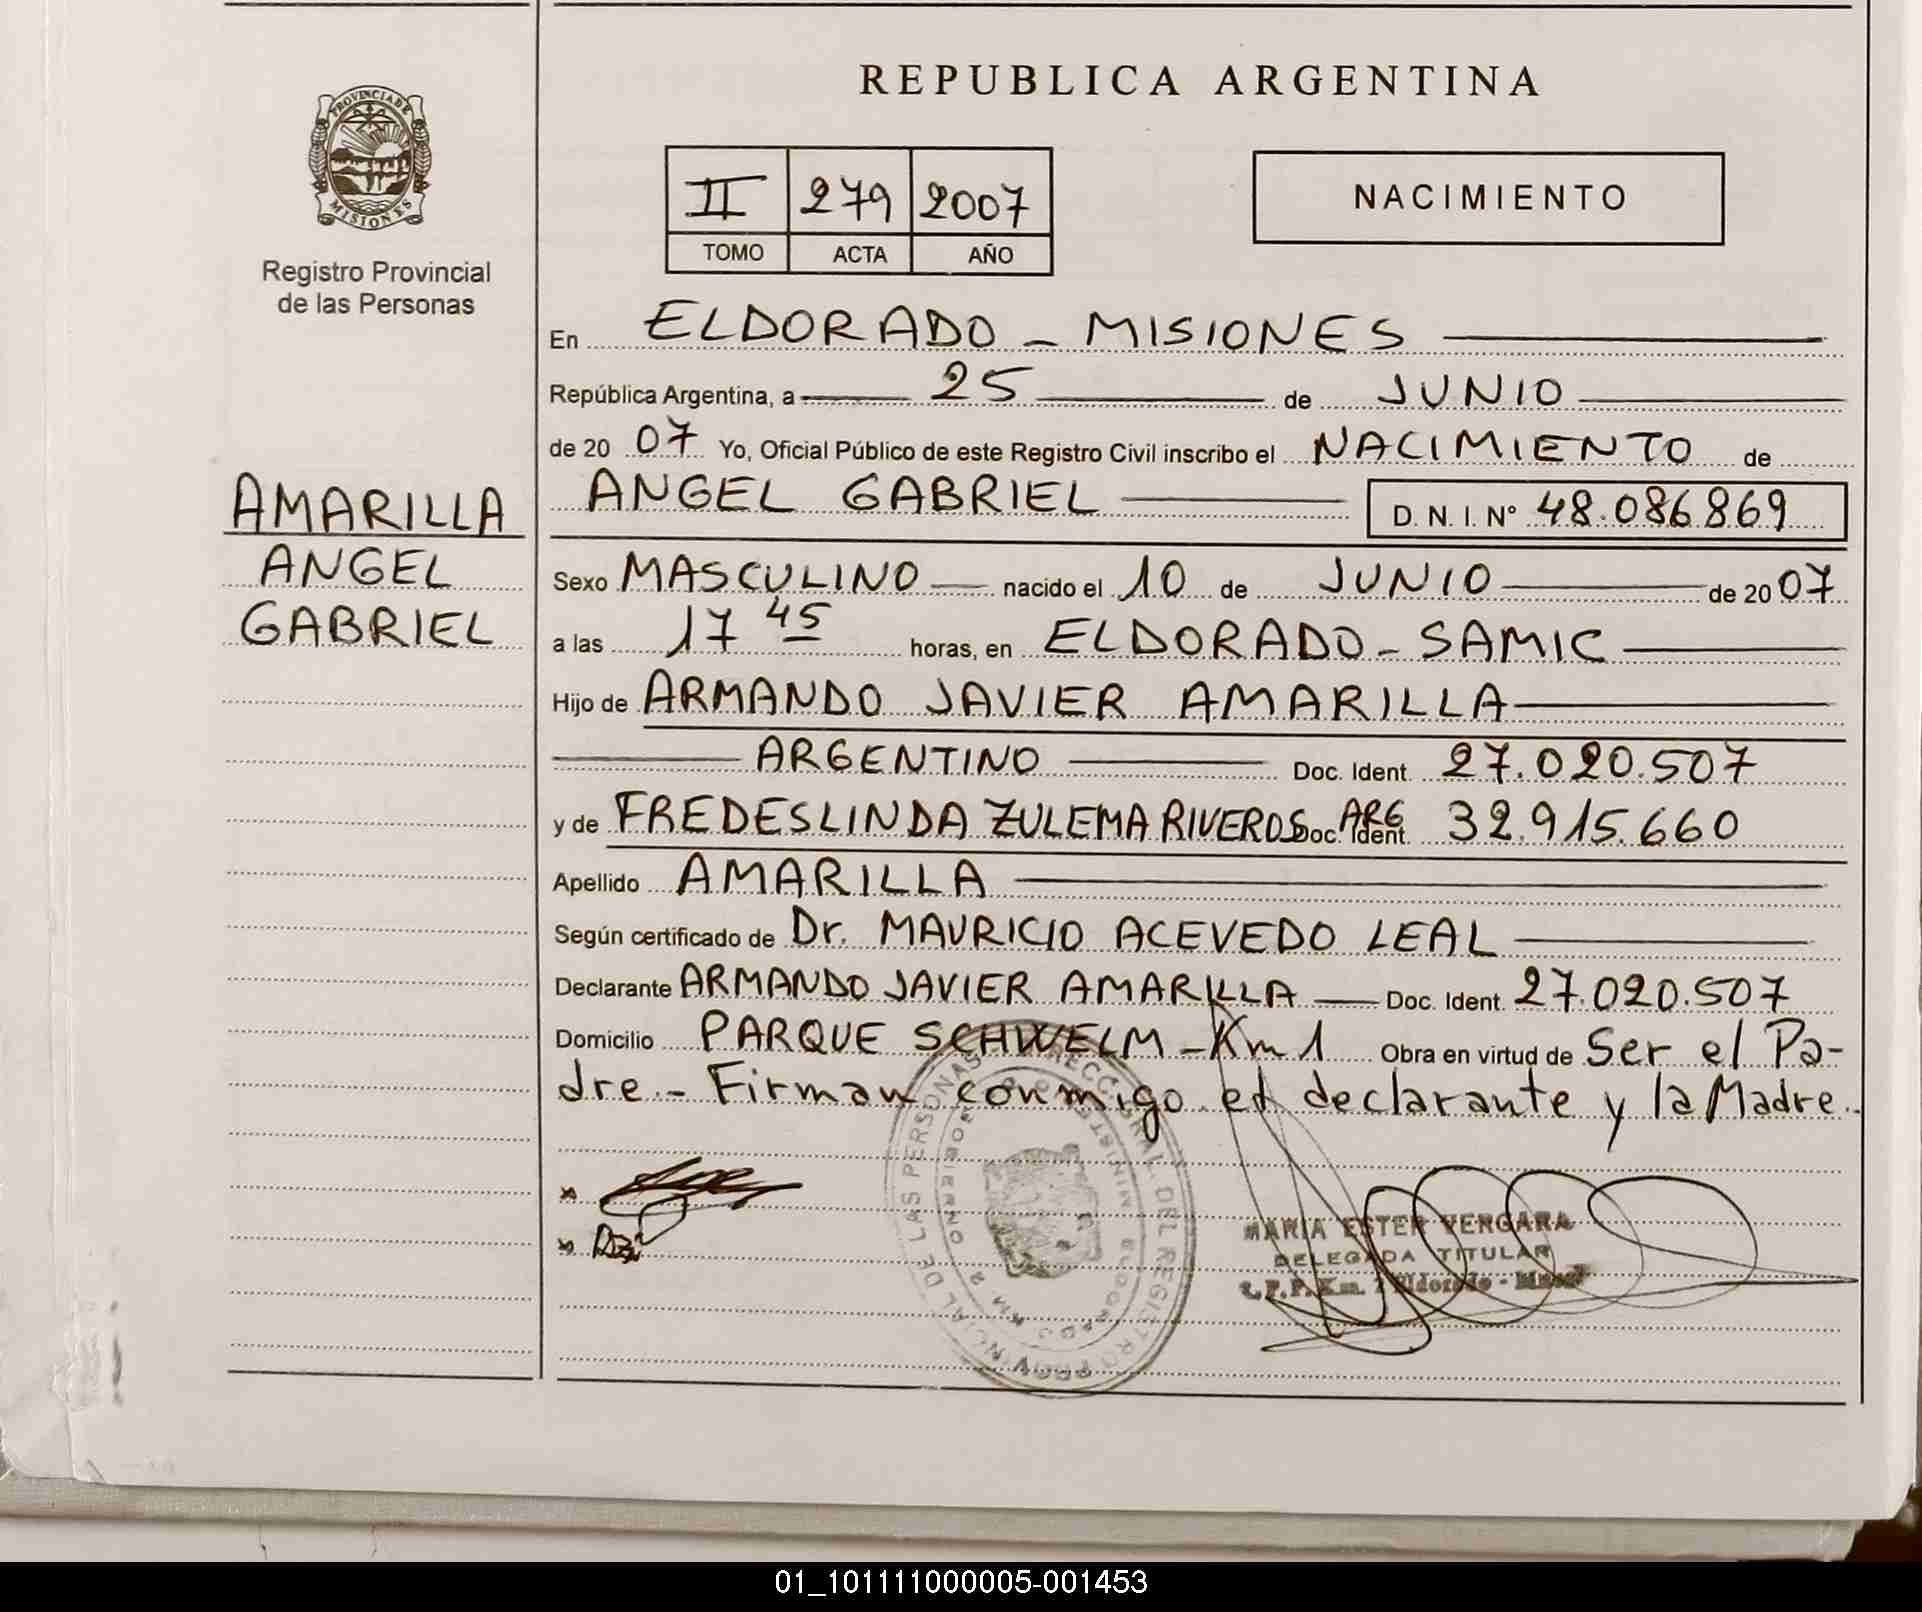 REPUBLICA ARGENTINA
PROVINCIA DE
MISIONES
Registro Provincial
de las Personas
II 279 2007
TOMO ACTA AÑO
NACIMIENTO
En ELDORADO - MISIONES
República Argentina, a 25 de JUNIO
de 20 07 Yo, Oficial Público de este Registro Civil inscribo el NACIMIENTO de
AMARILLA
ANGEL
GABRIEL
ANGEL GABRIEL D. N. I. Nº 48.086869
Sexo MASCULINO nacido el 10 de JUNIO de 20 07
a las 17 45 horas, en ELDORADO - SAMIC
Hijo de ARMANDO JAVIER AMARILLA
ARGENTINO Doc. Ident. 27.020.507
y de FREDESLINDA ZULEMA RIVEROS ARG Doc. Ident. 32.915.660
Apellido AMARILLA
Según certificado de Dr. MAURICIO ACEVEDO LEAL
Declarante ARMANDO JAVIER AMARILLA Doc. Ident. 27.020.507
Domicilio PARQUE SCHWELM - Km 1 Obra en virtud de Ser el Pa-
dre.- Firman conmigo el declarante y la Madre.
MARIA ESTER VERGARA
DELEGADA TITULAR
Eldorado
DEL REGISTRO PROVINCIAL DE LAS PERSONAS
01_101111000005-001453